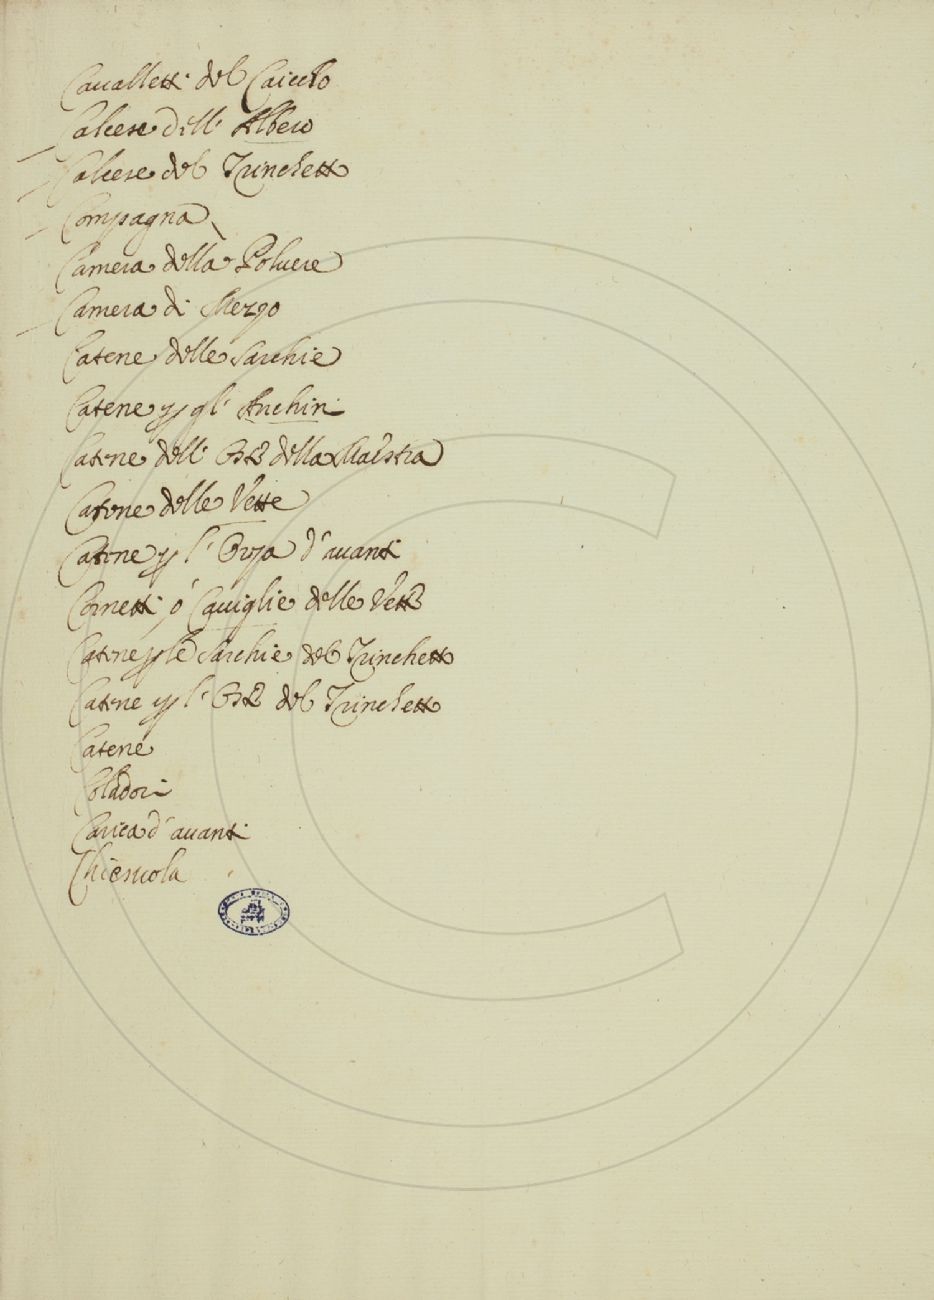 Cavalletti del Caiccho
Calcese dell' Albero
Calcese del Trinchetto
Compagna
Camera della Polvere
Camera di Mezzo
Catene delle Sarchie
Catene p gl' Anchini
Catene dell' Oste della Maéstra
Catene delle Vette
Catene p l' Orza d'avanti
Cornetti ó Caviglie delle Vette
Catene p le Sarchie del Trinchetto
Catene p l' Oste del Trinchetto
Catene
Coladori
Carica d'avanti
Chiesuola